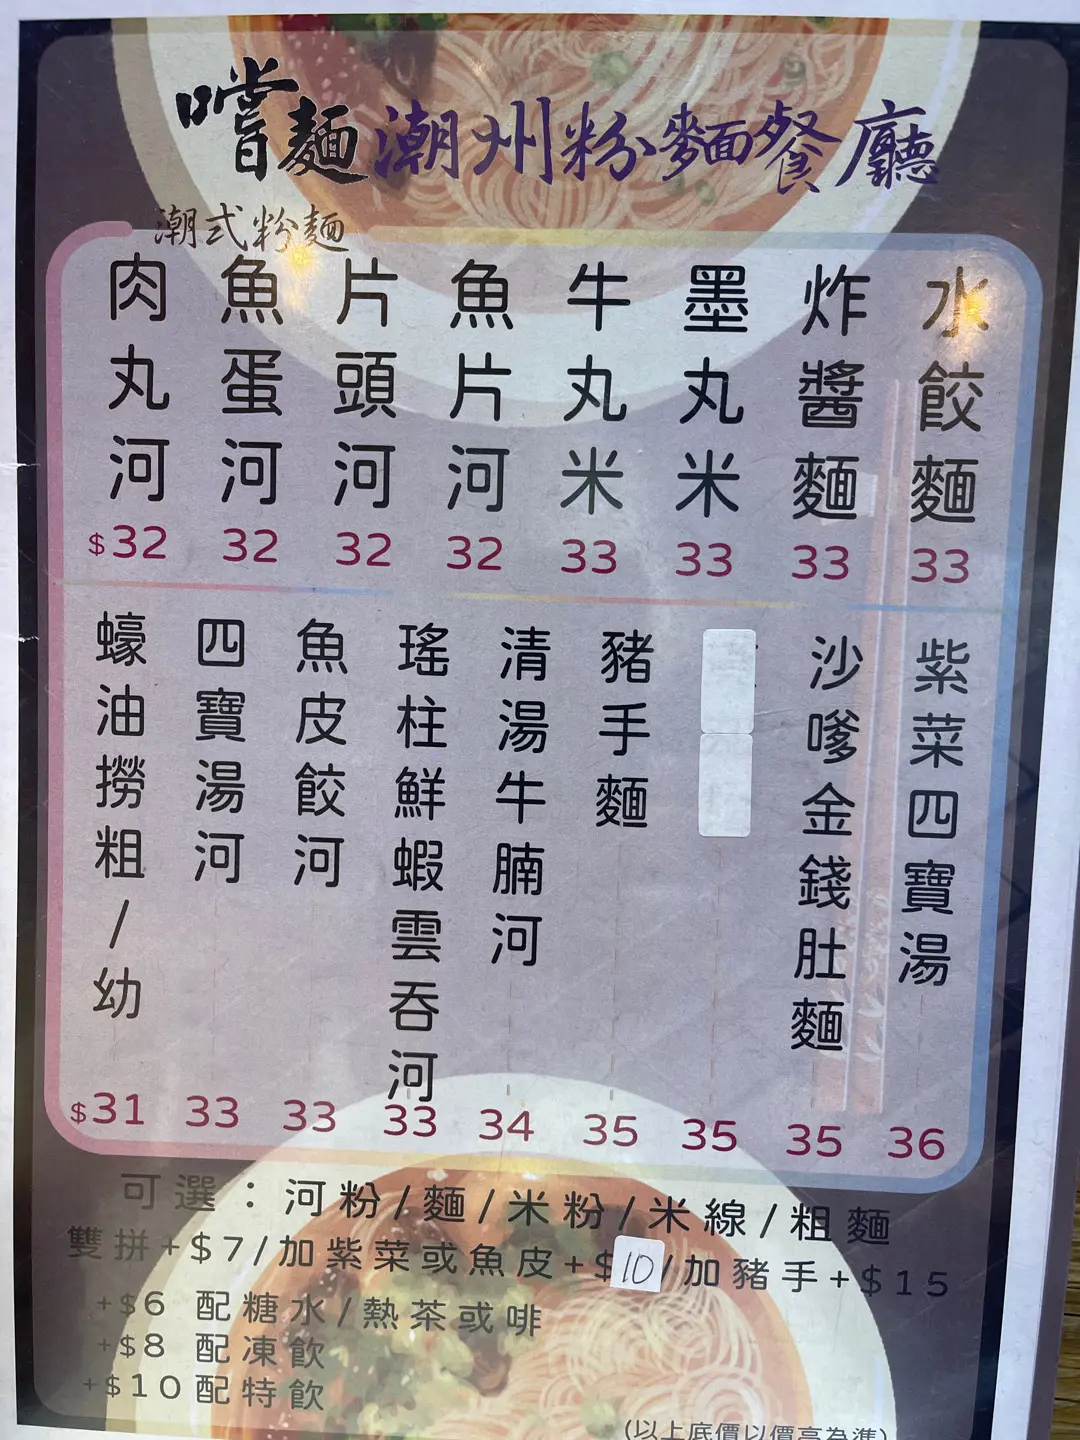 嚐麵潮州粉麵餐廳
潮式粉麵
肉丸河 $32
魚蛋河 32
片頭河 32
魚片河 32
牛丸米 33
墨丸米 33
炸醬麵 33
水餃麵 33
蠔油撈粗/幼 $31
四寶湯河 33
魚皮餃河 33
瑤柱鮮蝦雲吞河 33
清湯牛腩河 34
豬手麵 35
35
沙嗲金錢肚麵 35
紫菜四寶湯 36
可選：河粉/麵/米粉/米線/粗麵
雙拼+$7/加紫菜或魚皮+$10/加豬手+$15
+$6 配糖水/熱茶或啡
+$8 配凍飲
+$10配特飲
(以上底價以價高為準)